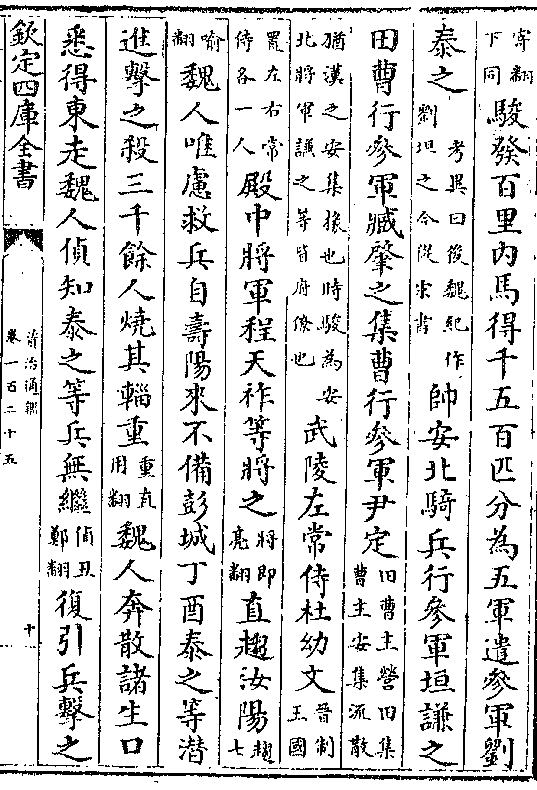 寄翻
下同
駿發百里内馬得千五百匹分為五軍遣參軍劉
泰之
考異曰後魏紀作
劉坦之今從宋書
帥安北騎兵行參軍垣謙之
田曹行參軍臧肇之集曹行參軍尹定
田曹主營田集
曹主安集流散
猶漢之安集掾也時駿為安
北將軍謙之等皆府僚也
武陵左常侍杜幼文
晉制
王國
置左右常
侍各一人
殿中將軍程天祚等將之
將即
亮翻
直趨汝陽
趨
七
喻
翻
魏人唯慮救兵自壽陽來不備彭城丁酉泰之等潜
進擊之殺三千餘人燒其輜重
重直
用翻
魏人奔散諸生口
悉得東走魏人偵知泰之等兵無繼
偵丑
鄭翻
復引兵擊之
欽定四庫全書
資治通鑑
卷一百二十五
十